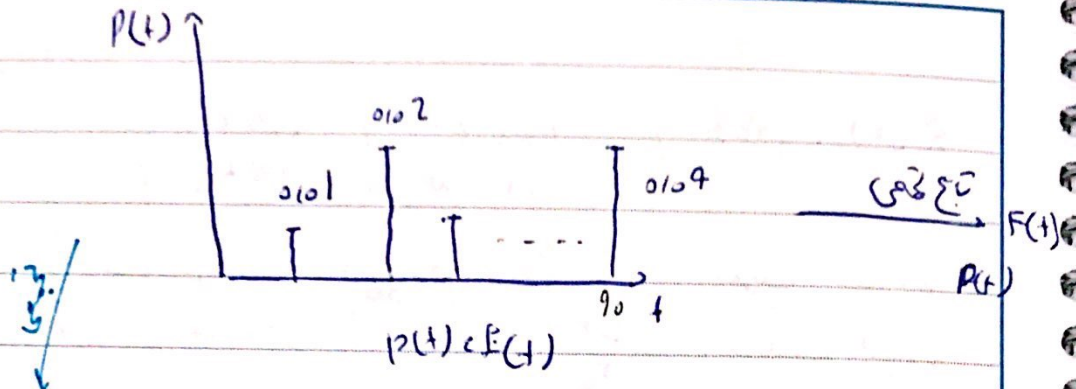 P(t)
0/02
0/01
0/04
تابع تجمعی
F(t)
P(t)
90 t
P(t) < F(t)